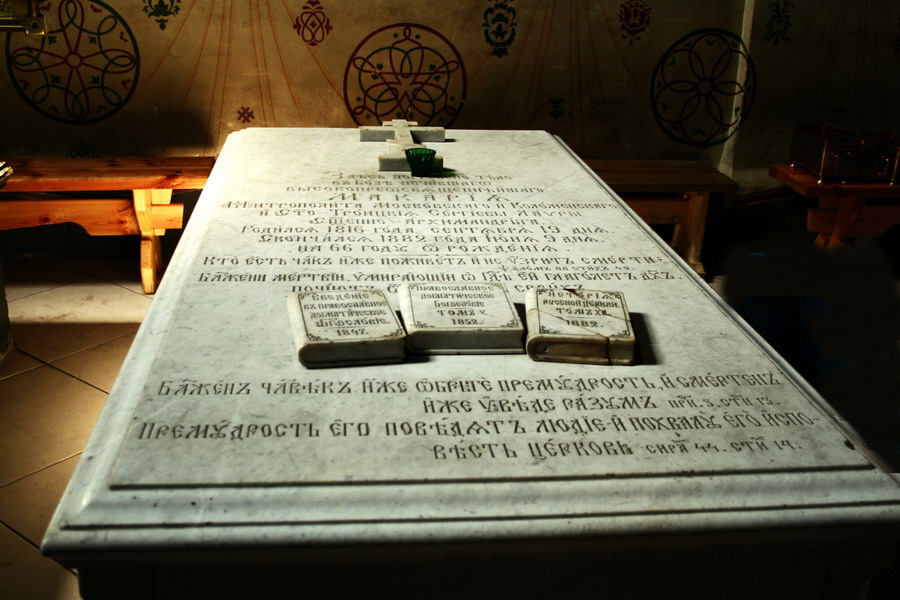 Здѣсь тѣло
въ Бозѣ почившаго
высокопреосвященнѣйшаго
Макарія
Митрополита Московскаго и Коломенскаго
и Сѵто-Троицкія Сергіевы Лавры
Священно-архимандрита.
Родился 1816 года сентября 19 дня.
Скончался 1882 года Іюня 9 дня.
на 66 году ѿ рожденія.
Кто есть чл҃къ иже поживетъ и не узритъ смерти.
Ѱаломъ стихъ
Блажени мертвіи, умирающіи ѡ Гдѣ. ей глаголетъ дх҃ъ,
почіютъ
Введеніе
въ православное
догматическое
Бгословіе.
1847.
Православно-
догматическое
Богословіе
Томъ V.
1852.
Исторія
русской церкви.
Томъ XII.
1882.
Бл҃женъ чл҃вѣкъ, иже ѡбрѣте премудрость, и смертенъ
иже увѣде разумъ прит. 3, сти 13.
Премудрость его повѣдятъ людіе и похвалу его испо-
вѣсть церковь сира 44. сти 14.